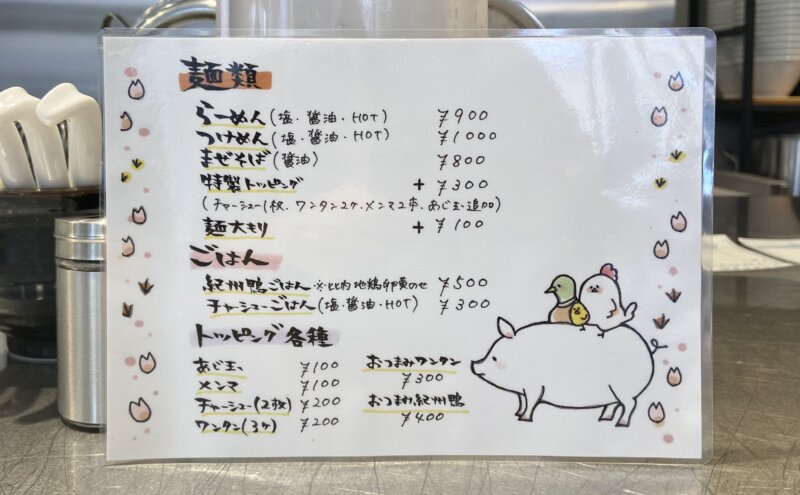 麺類
らーめん(塩・醤油・HOT) ¥900
つけめん(塩・醤油・HOT) ¥1000
まぜそば(醤油) ¥800
特製トッピング +¥300
(チャーシュー1枚、ワンタン2ケ、メンマ2本、あじ玉追加)
麺大もり +¥100
ごはん
紀州鴨ごはん ※比内地鶏卵黄のせ ¥500
チャーシューごはん(塩・醤油・HOT) ¥300
トッピング各種
あじ玉 ¥100
メンマ ¥100
チャーシュー(2枚) ¥200
ワンタン(3ケ) ¥200
おつまみワンタン
¥300
おつまみ紀州鴨
¥400